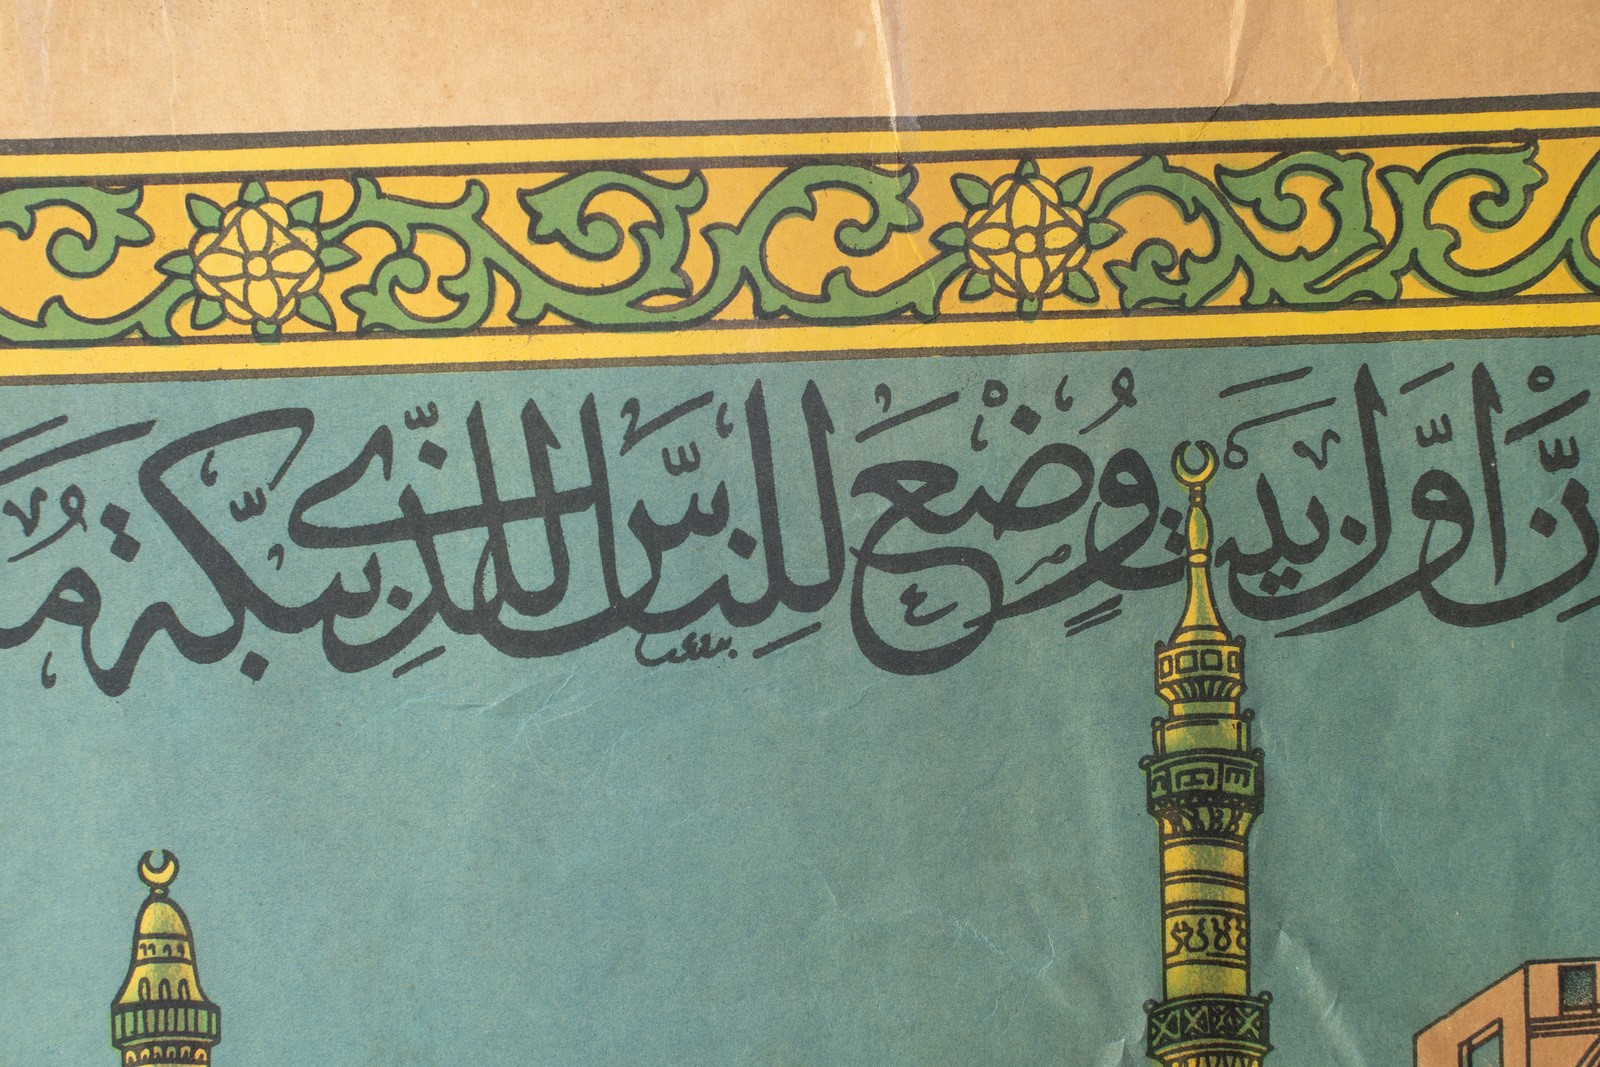 نَّ أَوَّلَ بَيْتٍ وُضِعَ لِلنَّاسِ لَلَّذِي بِبَكَّةَ مُ